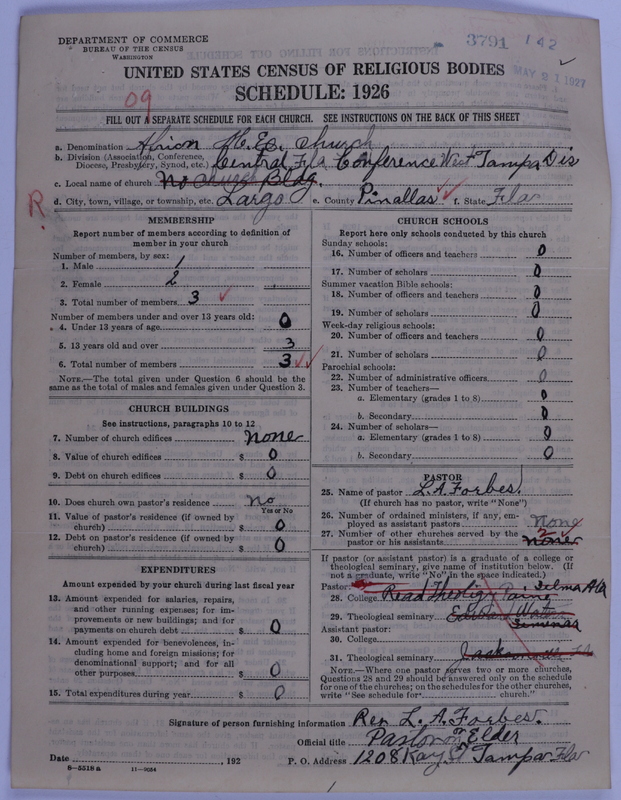 DEPARTMENT OF COMMERCE
BUREAU OF THE CENSUS
WASHINGTON
3791 142
MAY 21 1927
UNITED STATES CENSUS OF RELIGIOUS BODIES
SCHEDULE: 1926
09
FILL OUT A SEPARATE SCHEDULE FOR EACH CHURCH. SEE INSTRUCTIONS ON THE BACK OF THIS SHEET
a. Denomination African M. E. church
b. Division (Association, Conference, Diocese, Presbytery, Synod, etc.) Central Fla Conference West Tampa Dis
c. Local name of church No Bldg.
d. City, town, village, or township, etc. Largo e. County Pinallas f. State Fla
R.
MEMBERSHIP
Report number of members according to definition of
member in your church
Number of members, by sex:
1. Male 1
2. Female 2
3. Total number of members 3
Number of members under and over 13 years old:
4. Under 13 years of age 0
5. 13 years old and over 3
6. Total number of members 3
NOTE.—The total given under Question 6 should be the
same as the total of males and females given under Question 3.
CHURCH BUILDINGS
See instructions, paragraphs 10 to 12
7. Number of church edifices none
8. Value of church edifices $ 0
9. Debt on church edifices $ 0
10. Does church own pastor's residence No
Yes or No
11. Value of pastor's residence (if owned by
church) $ 0
12. Debt on pastor's residence (if owned by
church) $ 0
EXPENDITURES
Amount expended by your church during last fiscal year
13. Amount expended for salaries, repairs,
and other running expenses; for im-
provements or new buildings; and for
payments on church debt $ 0
14. Amount expended for benevolences, in-
cluding home and foreign missions; for
denominational support; and for all
other purposes $ 0
15. Total expenditures during year $ 0
CHURCH SCHOOLS
Report here only schools conducted by this church
Sunday schools:
16. Number of officers and teachers 0
17. Number of scholars 0
Summer vacation Bible schools:
18. Number of officers and teachers 0
19. Number of scholars 0
Week-day religious schools:
20. Number of officers and teachers 0
21. Number of scholars 0
Parochial schools:
22. Number of administrative officers 0
23. Number of teachers—
a. Elementary (grades 1 to 8) 0
b. Secondary 0
24. Number of scholars—
a. Elementary (grades 1 to 8) 0
b. Secondary 0
PASTOR
25. Name of pastor L. A. Forbes.
(If church has no pastor, write "None")
26. Number of ordained ministers, if any, em-
ployed as assistant pastors None
27. Number of other churches served by the
pastor or his assistants 2 none
If pastor (or assistant pastor) is a graduate of a college or
theological seminary, give name of institution below. (If
not a graduate, write "No" in the space indicated.)
Pastor: Selma Ala
28. College Read Theology Paine
29. Theological seminary Edward Waters
Assistant pastor:
30. College
31. Theological seminary Jacksonville Fla
NOTE.—Where one pastor serves two or more churches,
Questions 28 and 29 should be answered only on the schedule
for one of the churches; on the schedules for the other churches,
write "See schedule for church."
Signature of person furnishing information Rev L. A. Forbes.
Official title Pastor or Elder
Date , 192 P. O. Address 1208 Kay St Tampa Fla
8-5518 a 11-9054